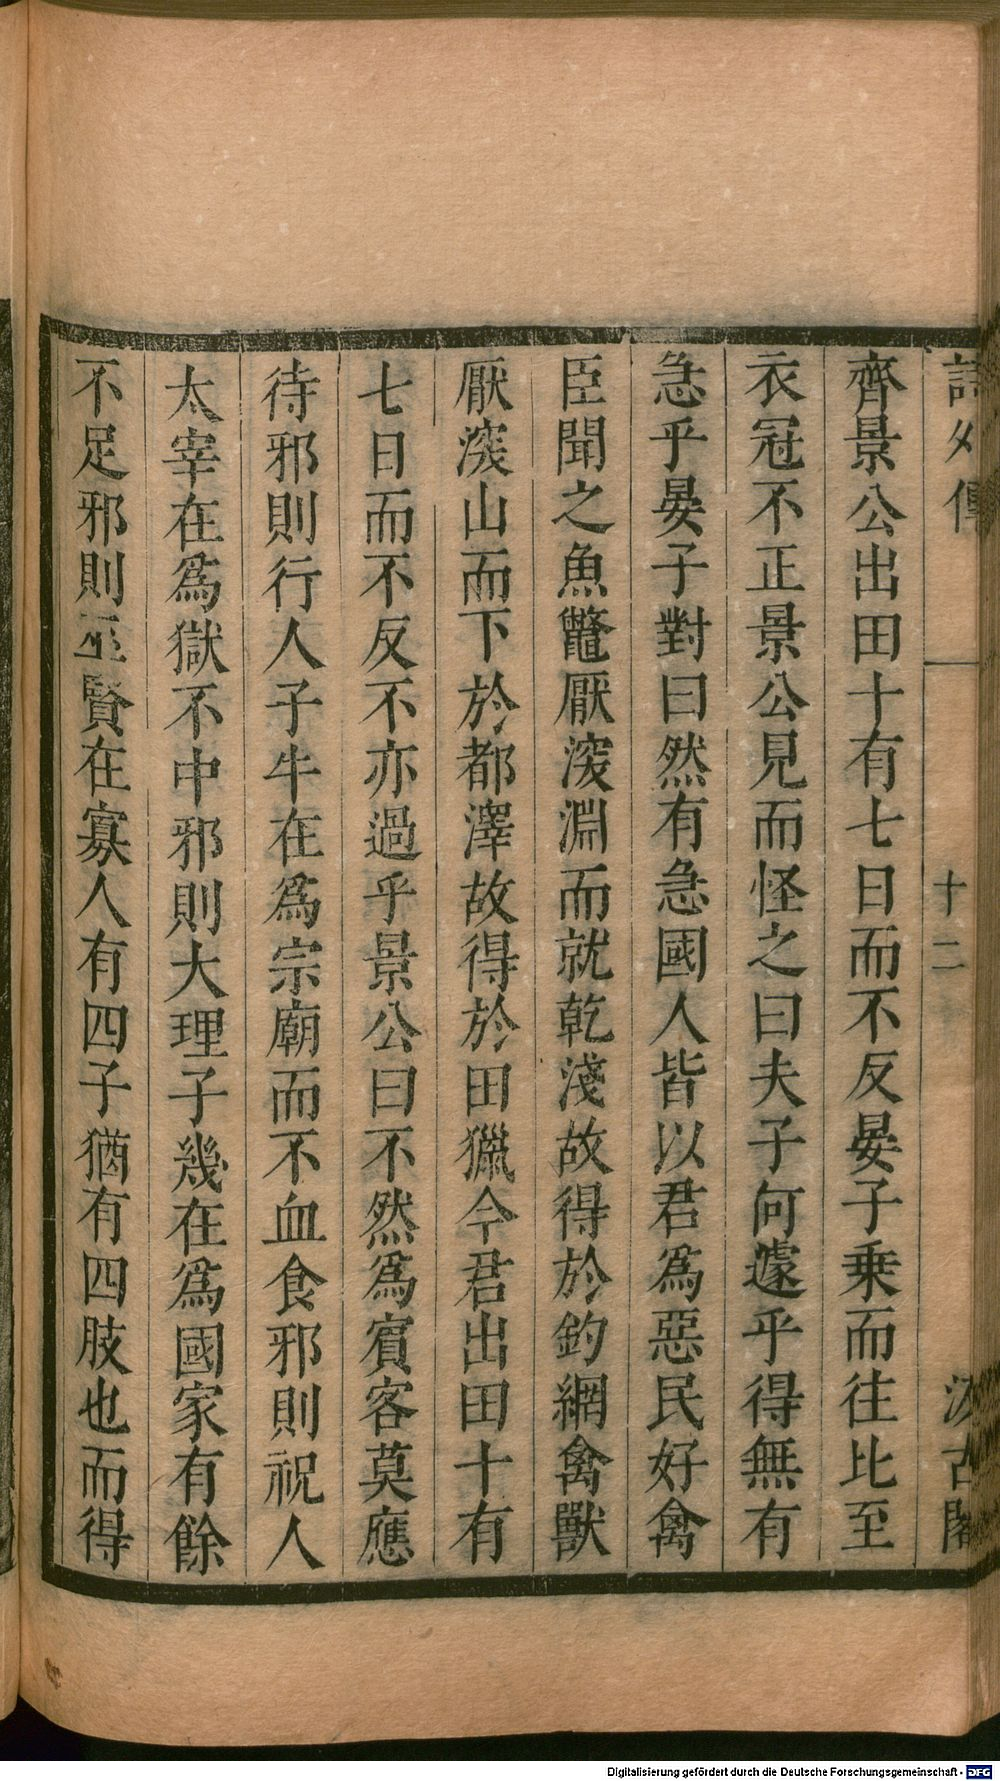 詩外傳 十二 汲古閣
齊景公出田十有七日而不反晏子乗而往比至
衣冠不正景公見而怪之曰夫子何遽乎得無有
急乎晏子對曰然有急國人皆以君爲惡民好禽
臣聞之魚鼈厭深淵而就乾淺故得於釣網禽獸
厭深山而下於都澤故得於田獵今君出田十有
七日而不反不亦過乎景公曰不然爲賓客莫應
待邪則行人子牛在爲宗廟而不血食邪則祝人
太宰在爲獄不中邪則大理子幾在爲國家有餘
不足邪則巫賢在寡人有四子猶有四肢也而得
Digitalisierung gefördert durch die Deutsche Forschungsgemeinschaft - DFG